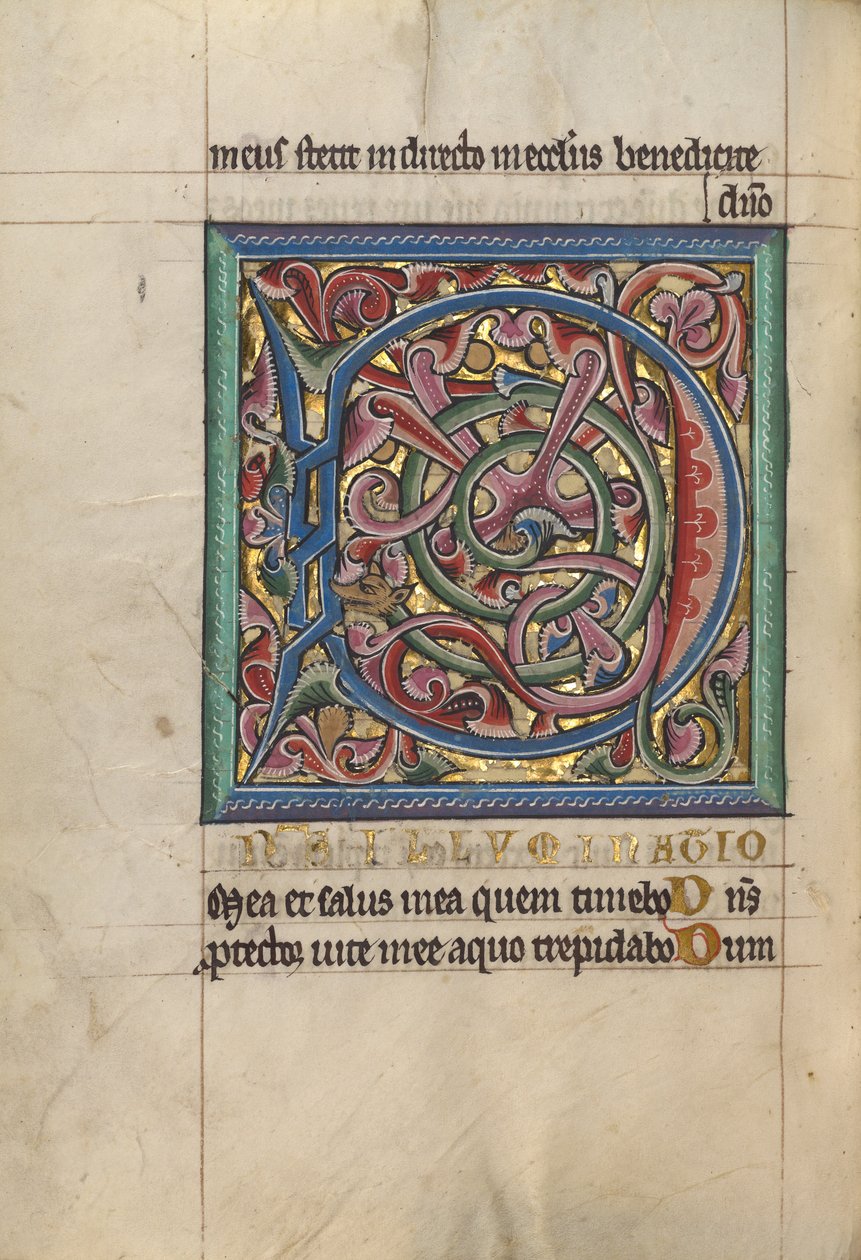 meus stetit in directo in ecclĩis benedicite
dño
D
NS ILLVMINATIO
Mea et salus mea quem timebo D ñs
ꝓtectoꝝ uite mee a quo trepidabo Dum